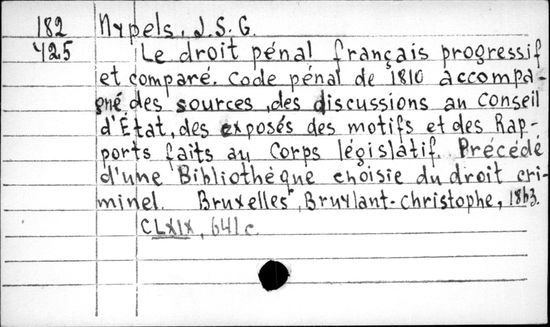 182 Nypels, J.S.G.
425 Le droit pénal français progressif
et comparé. Code pénal de 1810 accompa-
gné des sources, des discussions au Conseil
d'État, des exposés des motifs et des Rap-
ports faits au Corps législatif. Précédé
d'une Bibliothèque choisie du droit cri-
minel. Bruxelles, Bruylant-Christophe, 1863.
CLXIX, 641 c.